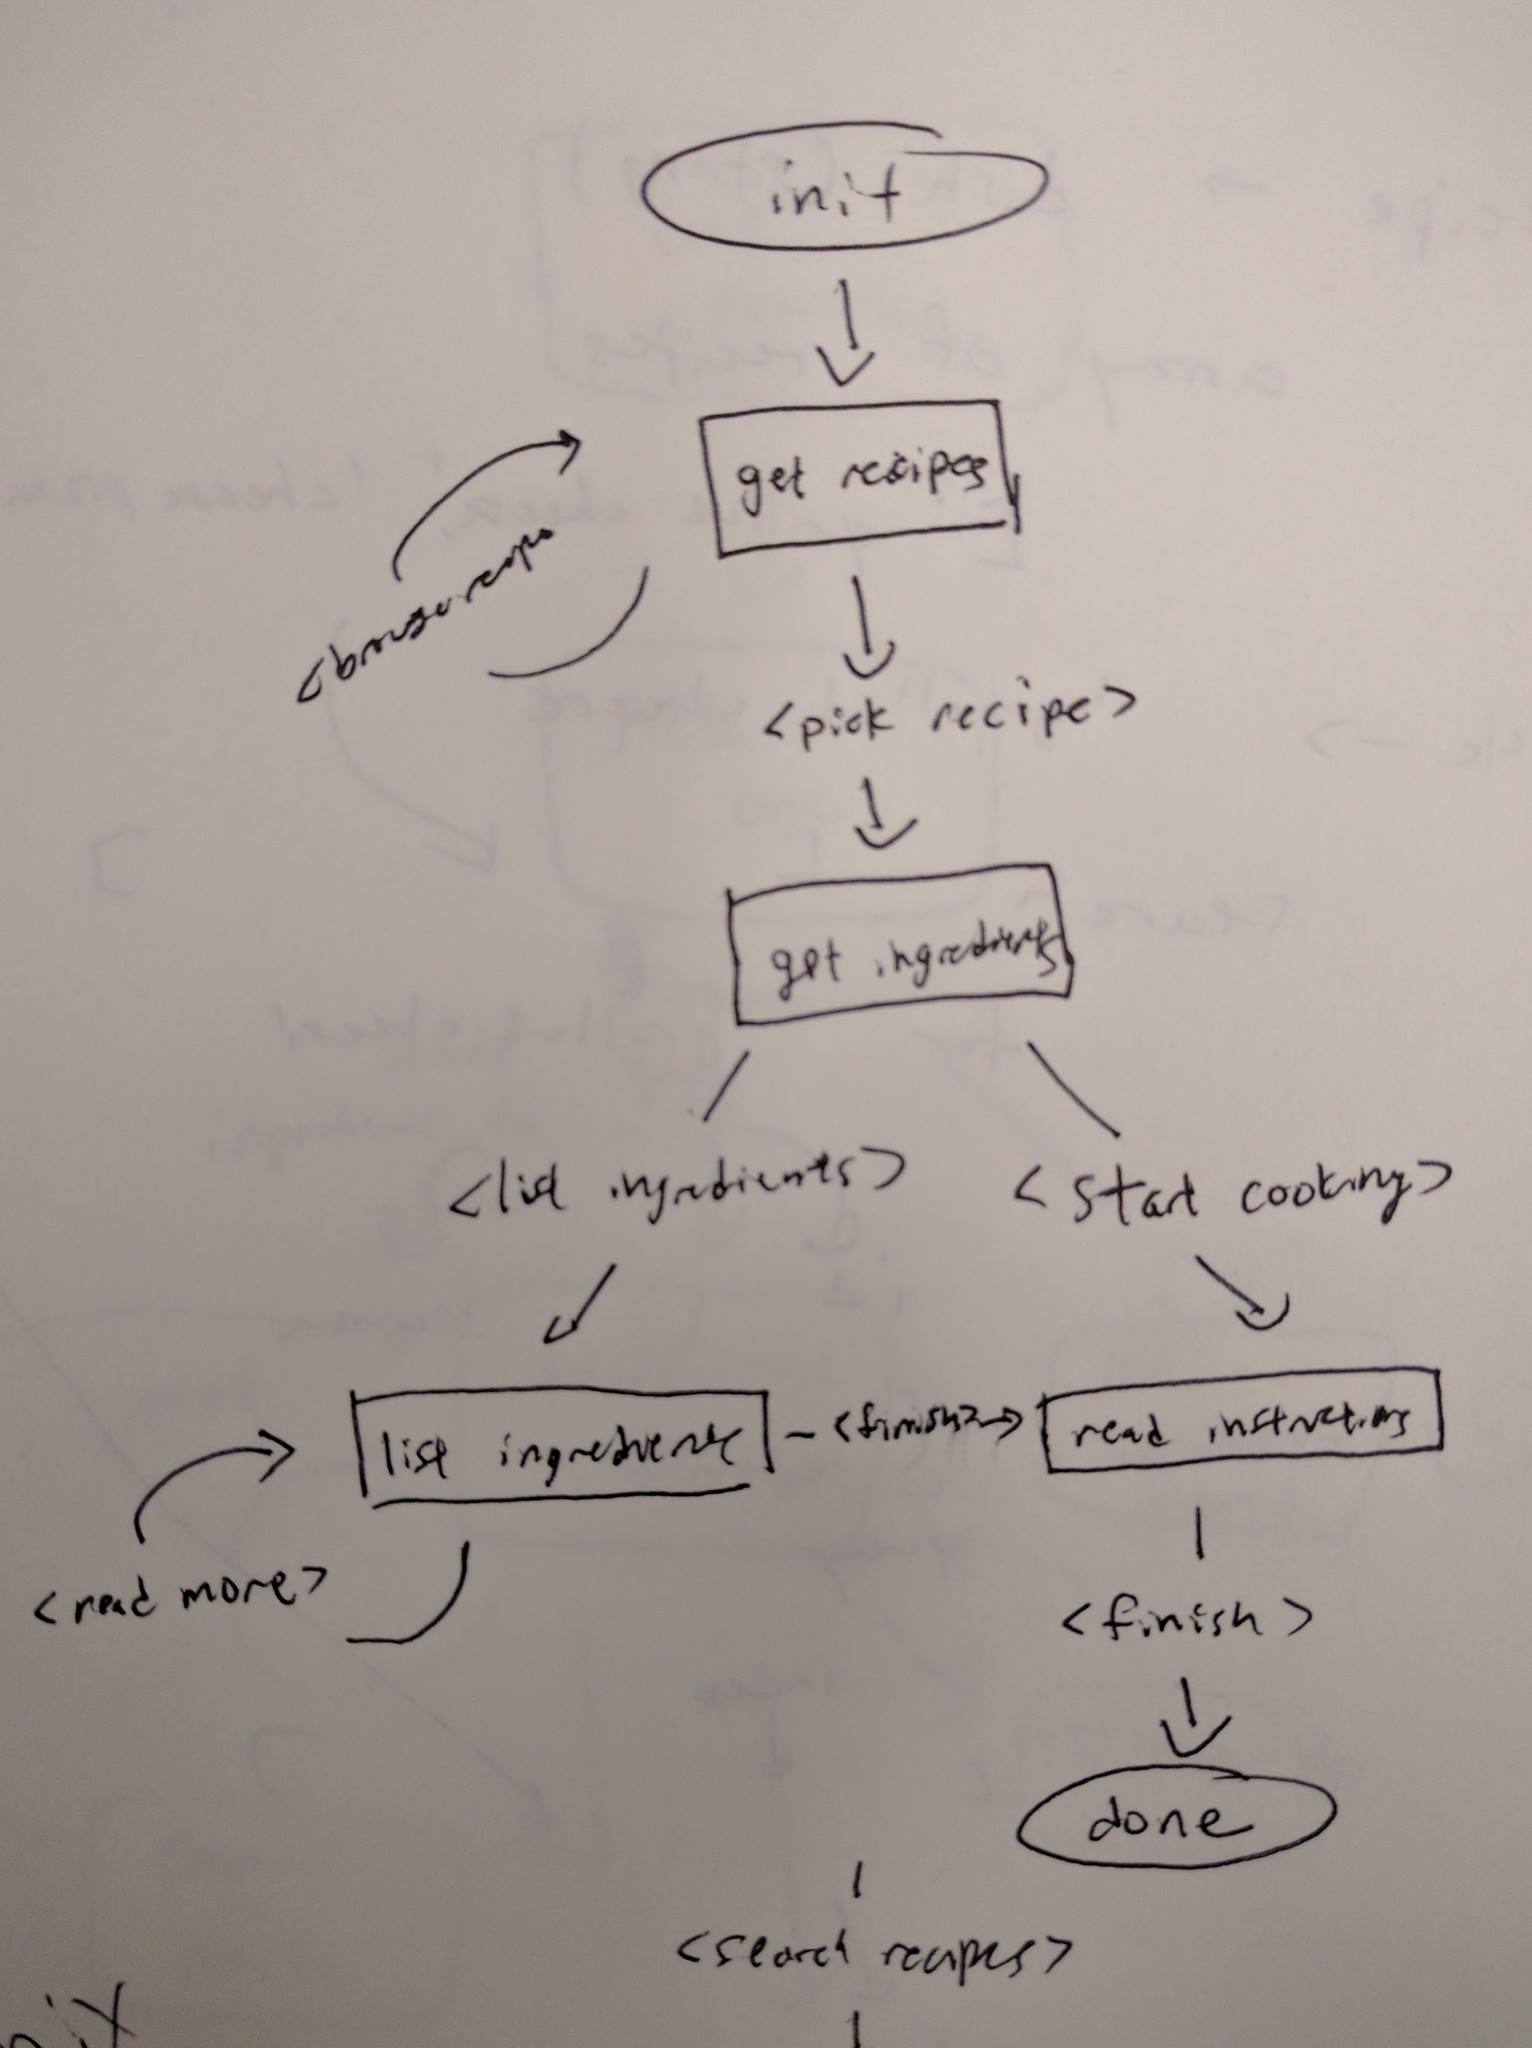 init
get recipes
<browse recipe
<pick recipe>
get ingredients
<list ingredients>
<start cooking>
list ingredients
<finish>
read instructions
<read more>
<finish>
done
<search recipes>